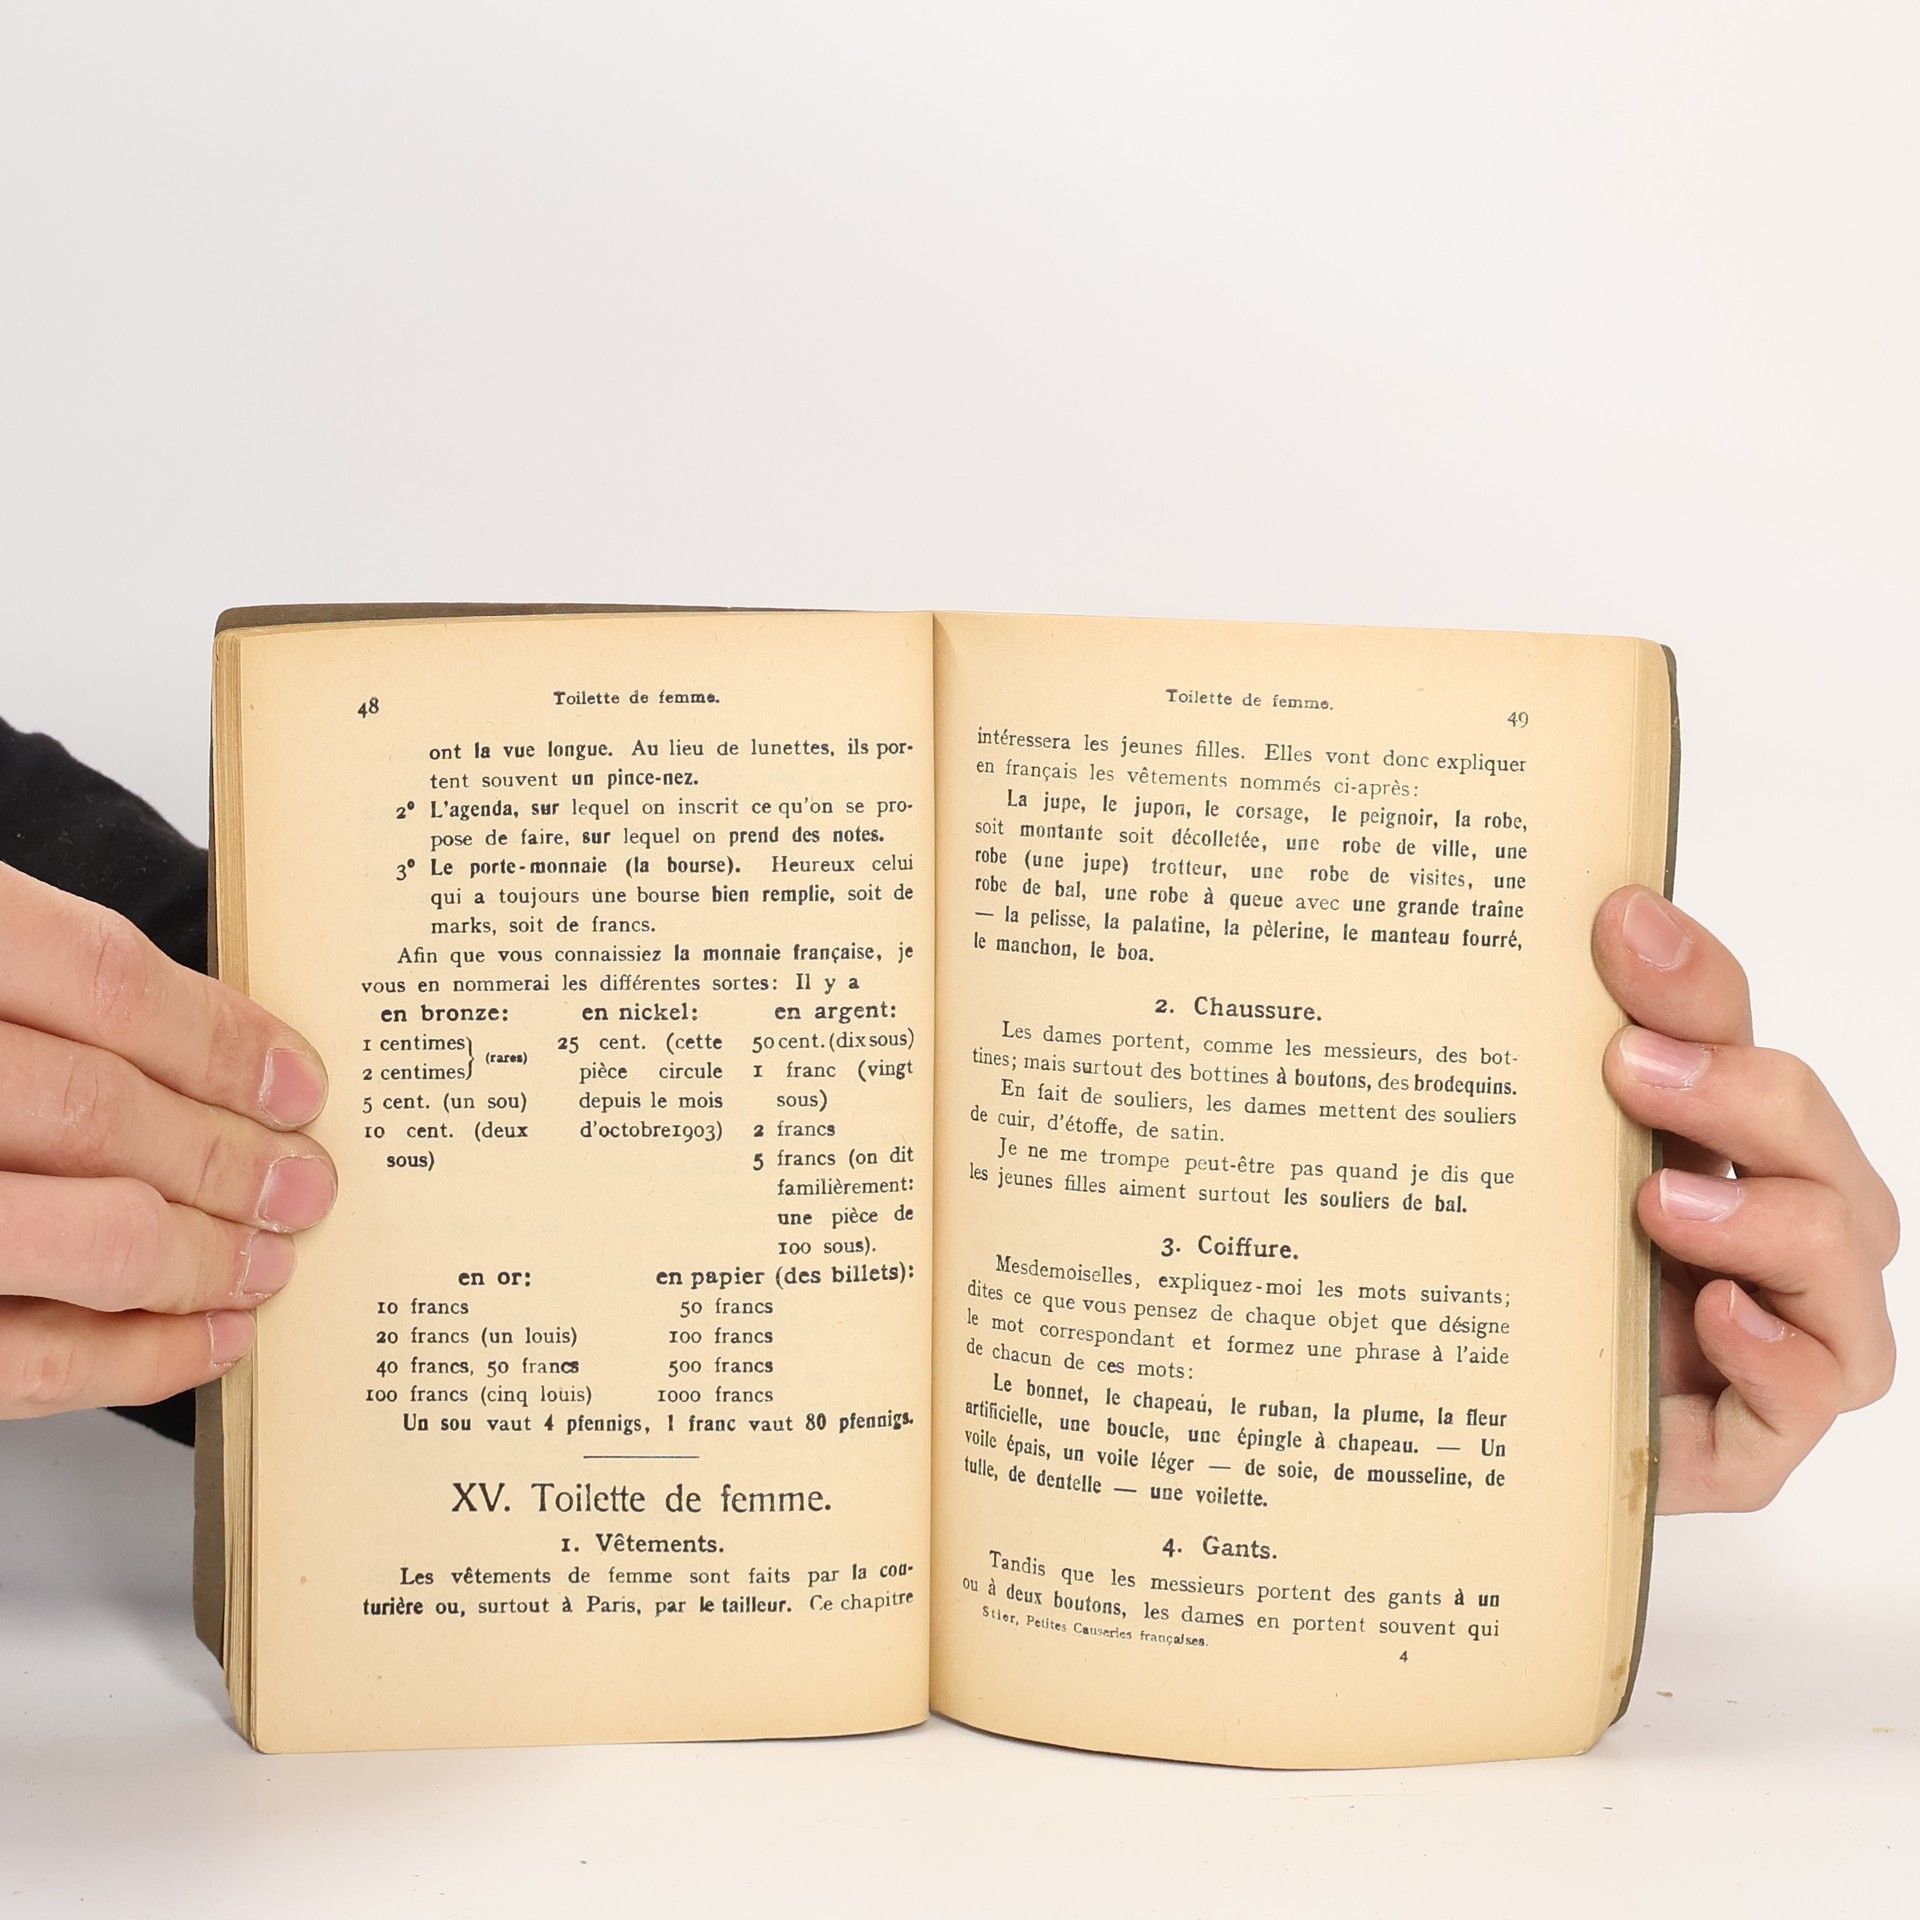 48
Toilette de femme.
ont la vue longue. Au lieu de lunettes, ils por-
tent souvent un pince-nez.
2° L'agenda, sur lequel on inscrit ce qu'on se pro-
pose de faire, sur lequel on prend des notes.
3° Le porte-monnaie (la bourse). Heureux celui
qui a toujours une bourse bien remplie, soit de
marks, soit de francs.
Afin que vous connaissiez la monnaie française, je
vous en nommerai les différentes sortes: Il y a
en bronze:
1 centimes
2 centimes} (rares)
5 cent. (un sou)
10 cent. (deux
sous)
en nickel:
25 cent. (cette
pièce circule
depuis le mois
d'octobre1903)
en argent:
50 cent. (dix sous)
1 franc (vingt
sous)
2 francs
5 francs (on dit
familièrement:
une pièce de
100 sous).
en or:
10 francs
20 francs (un louis)
40 francs, 50 francs
100 francs (cinq louis)
en papier (des billets):
50 francs
100 francs
500 francs
1000 francs
Un sou vaut 4 pfennigs, 1 franc vaut 80 pfennigs.
XV. Toilette de femme.
1. Vêtements.
Les vêtements de femme sont faits par la cou-
turière ou, surtout à Paris, par le tailleur. Ce chapitre
Toilette de femme.
49
intéressera les jeunes filles. Elles vont donc expliquer
en français les vêtements nommés ci-après:
La jupe, le jupon, le corsage, le peignoir, la robe,
soit montante soit décolletée, une robe de ville, une
robe (une jupe) trotteur, une robe de visites, une
robe de bal, une robe à queue avec une grande traîne
— la pelisse, la palatine, la pèlerine, le manteau fourré,
le manchon, le boa.
2. Chaussure.
Les dames portent, comme les messieurs, des bot-
tines; mais surtout des bottines à boutons, des brodequins.
En fait de souliers, les dames mettent des souliers
de cuir, d'étoffe, de satin.
Je ne me trompe peut-être pas quand je dis que
les jeunes filles aiment surtout les souliers de bal.
3. Coiffure.
Mesdemoiselles, expliquez-moi les mots suivants;
dites ce que vous pensez de chaque objet que désigne
le mot correspondant et formez une phrase à l'aide
de chacun de ces mots:
Le bonnet, le chapeau, le ruban, la plume, la fleur
artificielle, une boucle, une épingle à chapeau. — Un
voile épais, un voile léger — de soie, de mousseline, de
tulle, de dentelle — une voilette.
4. Gants.
Tandis que les messieurs portent des gants à un
ou à deux boutons, les dames en portent souvent qui
Stier, Petites Causeries françaises.
4